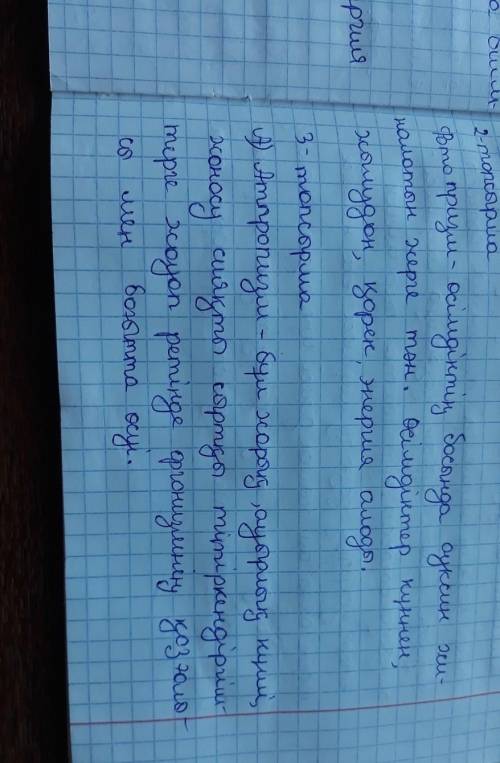 ргия
2-тапсырма
Фото призм - өсімдіктің басында ауксин жи-
налатын жерге тән. Өсімдіктер күннен,
жылудан, қорек, энергия алады.
3-тапсырма
А) Атропизм - бұл жарық, ауырлық күші,
жанасу сияқты сыртқы тітіркендіргіш-
терге жауап ретінде организмнің қозғалы-
сы мен бағытта өсуі.